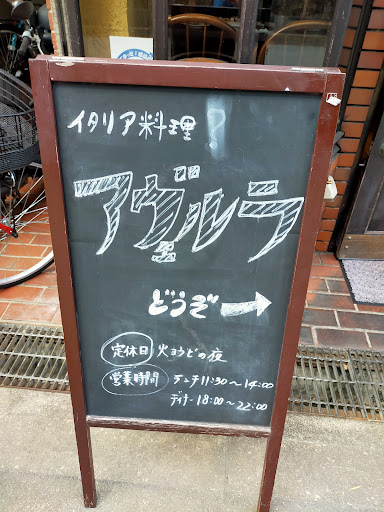 イタリア料理
アヴルラ
どうぞ→
定休日 火ようびの夜
営業時間 ランチ11:30～14:00
ディナー18:00～22:00